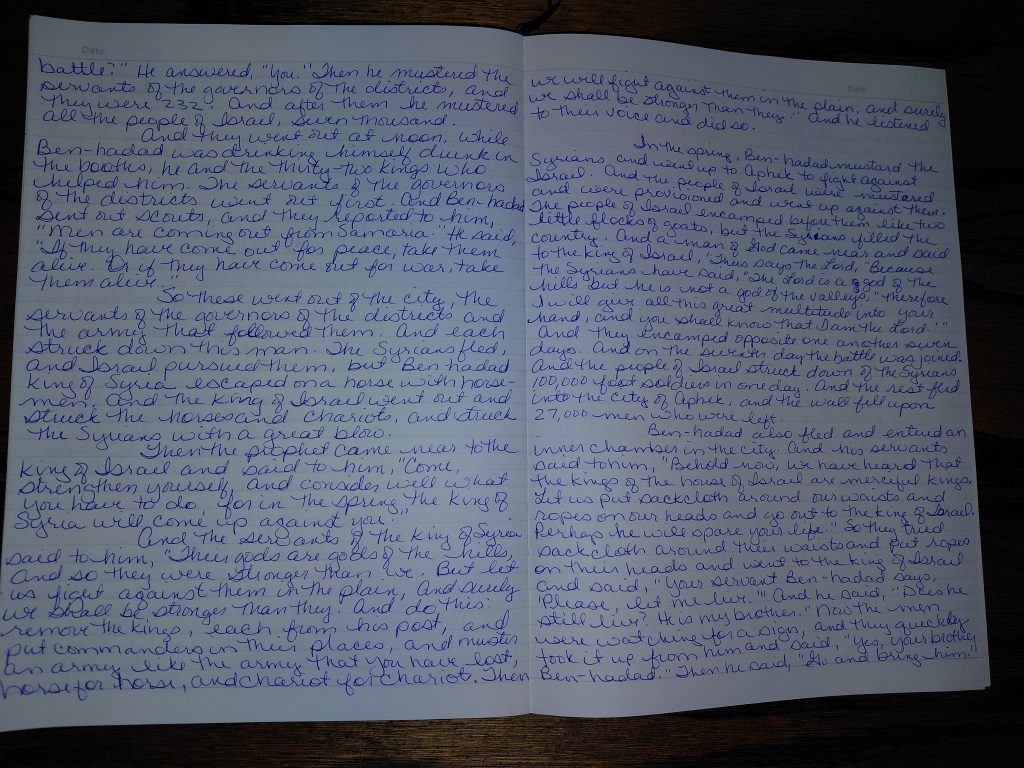 Date:
battle?" He answered, "You." Then he mustered the
servants of the governors of the districts, and
they were 232. And after them he mustered
all the people of Israel, seven thousand.
And they went out at noon, while
Ben-hadad was drinking himself drunk in
the booths, he and the thirty-two kings who
helped him. The servants of the governors
of the districts went out first. And Ben-hadad
sent out scouts, and they reported to him,
"Men are coming out from Samaria." He said,
"If they have come out for peace, take them
alive. Or if they have come out for war, take
them alive."
So these went out of the city, the
servants of the governors of the districts and
the army that followed them. And each
struck down this man. The Syrians fled,
and Israel pursued them, but Ben hadad
king of Syria escaped on a horse with horse-
men. And the king of Israel went out and
struck the horses and chariots, and struck
the Syrians with a great blow.
Then the prophet came near to the
king of Israel and said to him, "Come,
strengthen yourself, and consider well what
you have to do, for in the spring the king of
Syria will come up against you."
And the servants of the king of Syria
said to him, "Their gods are gods of the hills,
And so they were stronger than we. But let
us fight against them in the plain, and surely
we shall be stronger than they. And do this:
remove the kings, each from his post, and
put commanders in their places, and muster
an army like the army that you have lost,
horse for horse, and chariot for chariot. Then
Date:
we will fight against them in the plain, and surely
we shall be stronger than they." And he listened
to their voice and did so.
In the spring, Ben-hadad mustard the
Syrians and went up to Aphek to fight against
Israel. And the people of Israel were mustered
and were provisioned and went up against them.
The people of Israel encamped before them like two
little flocks of goats, but the Syrians filled the
country. And a man of God came near and said
to the king of Israel, "Thus says the Lord, "Because
the Syrians have said, "The Lord is a god of the
hills but he is not a god of the valleys," therefore
I will give all this great multitude into your
hand, and you shall know that I am the Lord.'"
And they encamped opposite one another seven
days. And on the seventh day the battle was joined.
And the people of Israel struck down of the Syrians
100,000 foot soldiers in one day. And the rest fled
into the city of Aphek, and the wall fell upon
27,000 men who were left.
Ben-hadad also fled and entered an
inner chamber in the city. And his servants
said to him, "Behold now, we have heard that
the kings of the house of Israel are merciful kings.
Let us put sackcloth around our waists and
ropes on our heads and go out to the king of Israel.
Perhaps he will spare your life." So they tied
sackcloth around their waists and put ropes
on their heads and went to the king of Israel
and said, "Your servant Ben-hadad says,
'Please, let me live.'" And he said, "Does he
still live? He is my brother." Now the men
were watching for a sign, and they quickly
took it up from him and said, "Yes, your brother
Ben-hadad." Then he said, "Go and bring him."